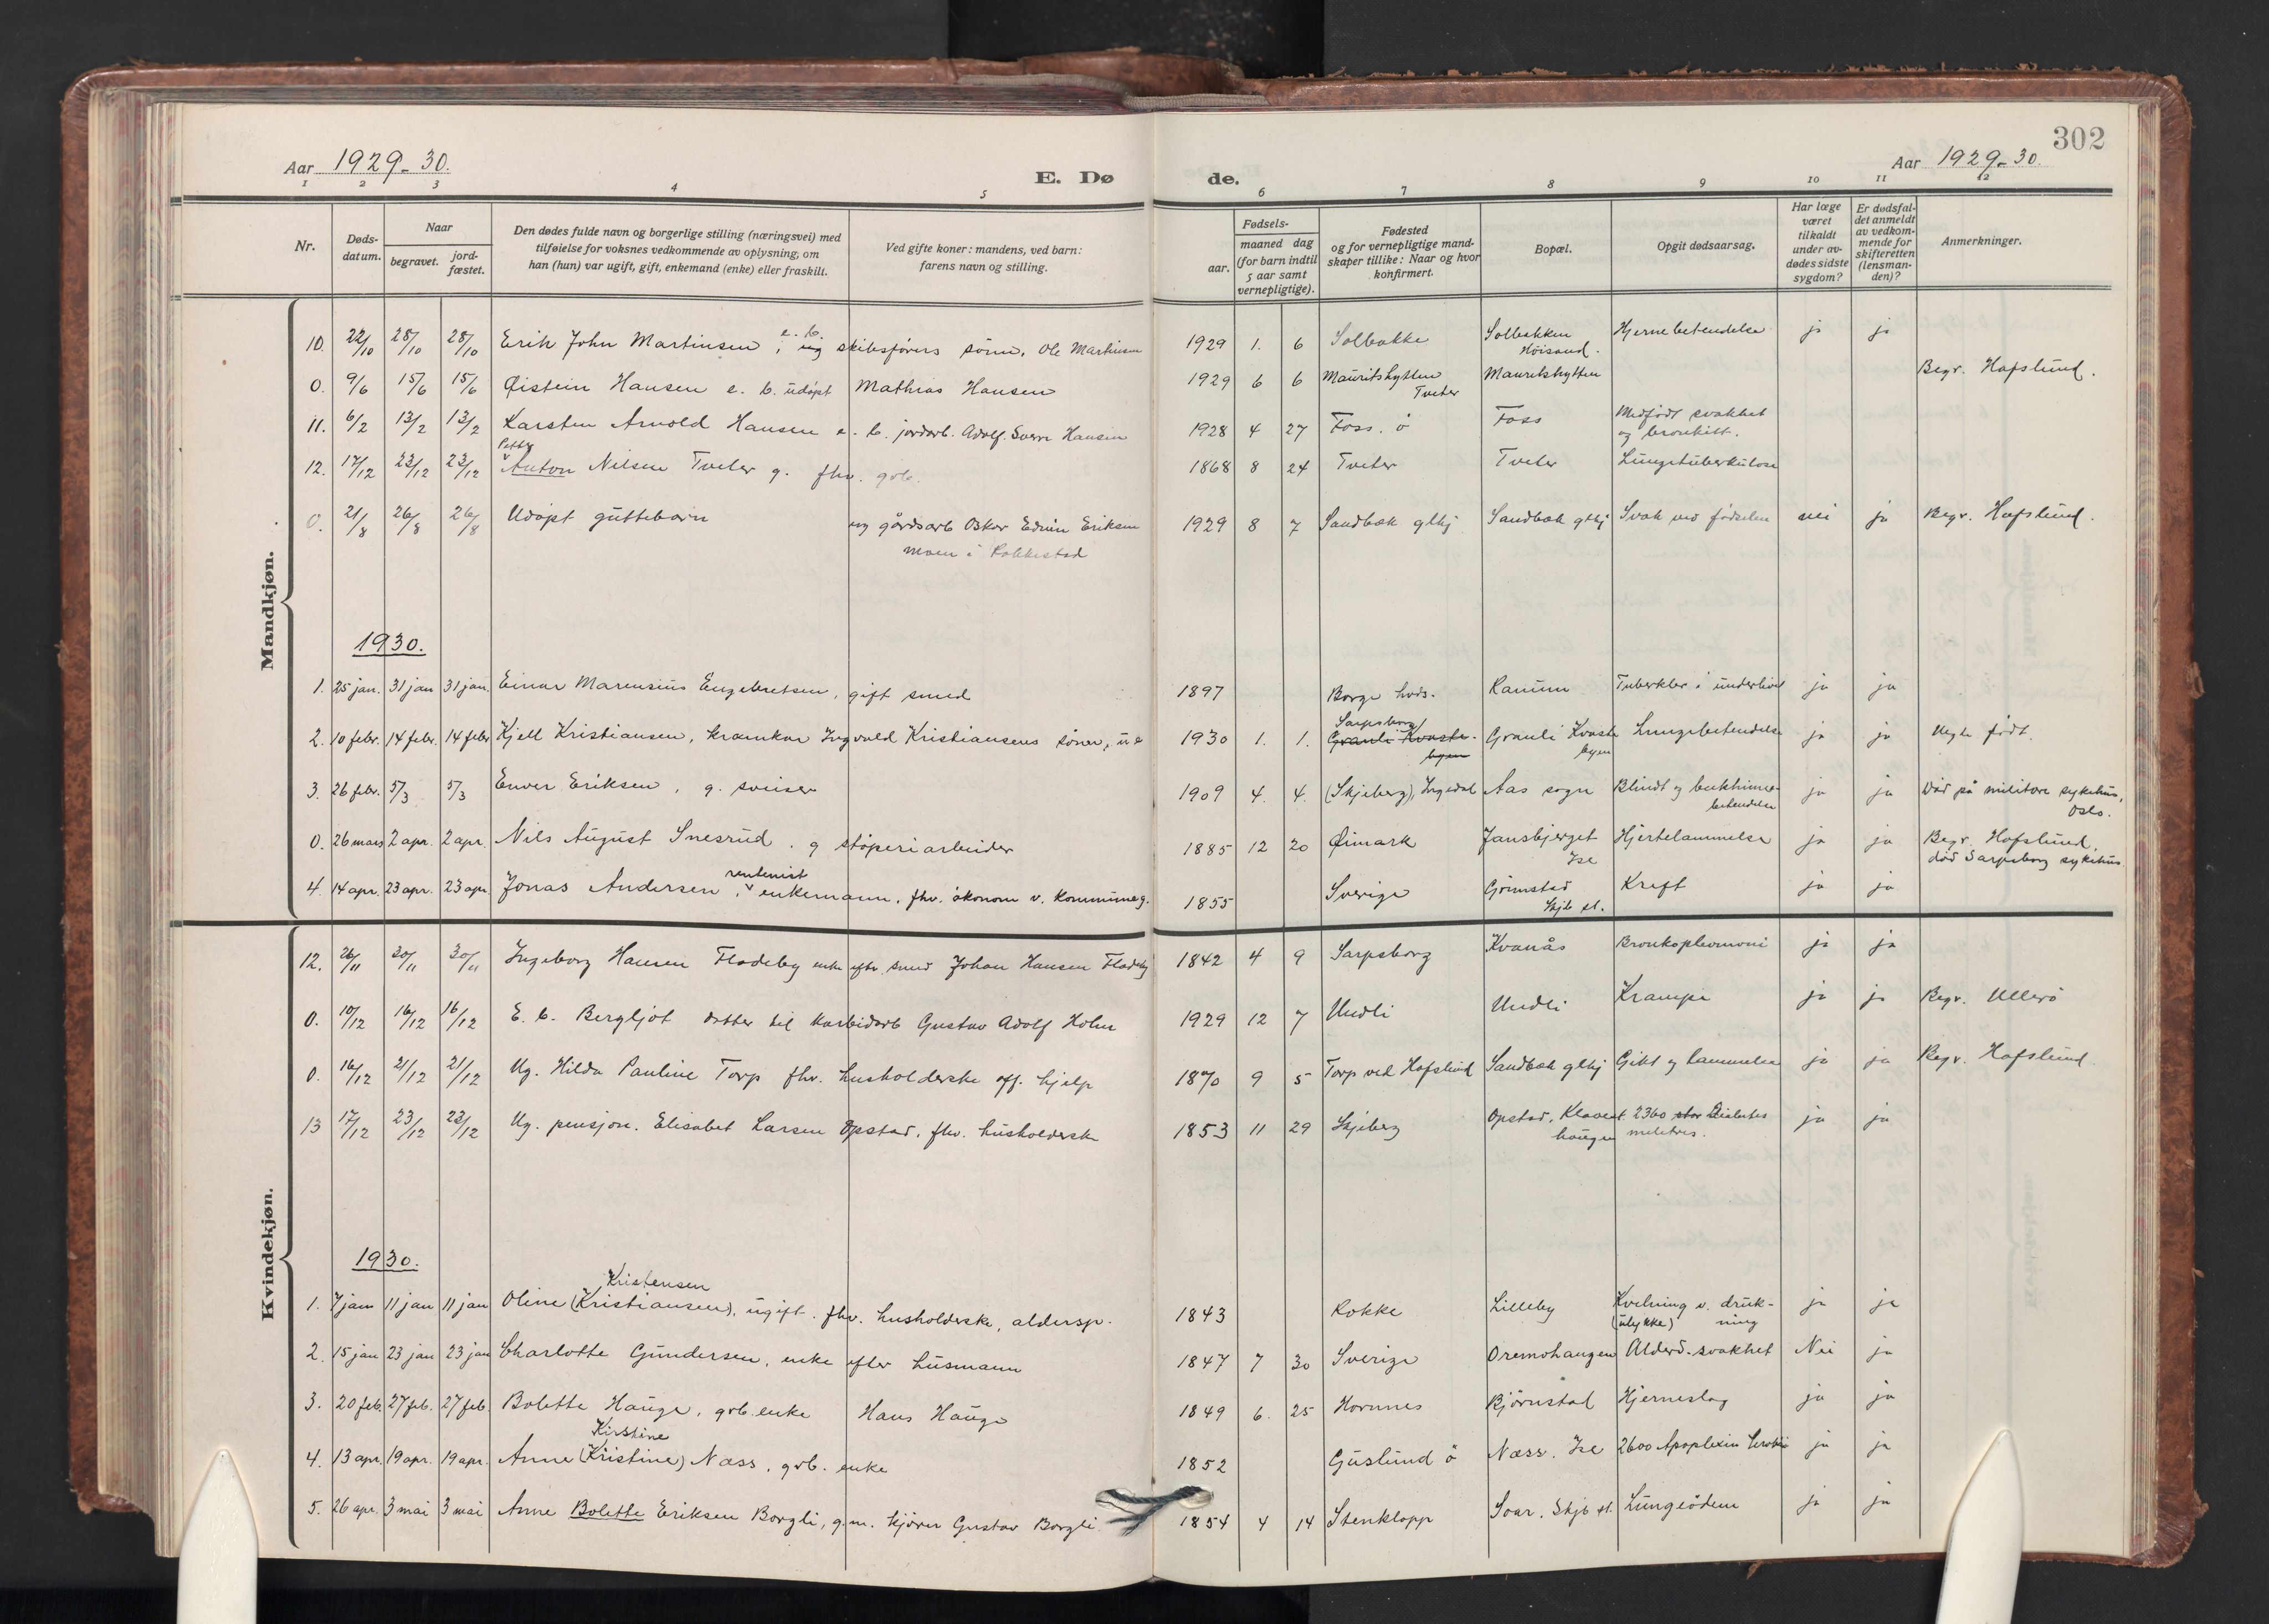 302
Aar 1929-30. E. Dø de. Aar 1929-30.
1 2 3 4 5 6 7 8 9 10 11 12
Nr.
Døds-
datum.
Naar
begravet.
jord-
fæstet.
Den dødes fulde navn og borgerlige stilling (næringsvei) med
tilføielse for voksnes vedkommende av oplysning, om
han (hun) var ugift, gift, enkemand (enke) eller fraskilt.
Ved gifte koner: mandens, ved barn:
farens navn og stilling.
Fødsels-
aar.
maaned dag
(for barn indtil
5 aar samt
vernepligtige).
Fødested
og for vernepligtige mand-
skaper tillike: Naar og hvor
konfirmert.
Bopæl.
Opgit dødsaarsag.
Har læge
været
tilkaldt
under av-
dødes sidste
sygdom?
Er dødsfal-
det anmeldt
av vedkom-
mende for
skifteretten
(lensman-
den)?
Anmerkninger.
Mandkjøn.
10. 22/10 28/10 28/10 Erik John Martinsen, e. b. ug skibsførers sønn. Ole Martinsen 1929 1. 6 Solbakke Solbakken Høisand. Hjernebetendelse ja ja
0. 9/6 15/6 15/6 Øistein Hansen e. b. udøpt Mathias Hansen 1929 6 6 Mauritshytten Tveter Mauritshytten Begr. Hafslund.
11. 6/2 13/2 13/2 Karsten Arnold Hansen e. b. jordarb. Adolf Sverre Hansen 1928 4 27 Foss. ö Foss Medfødt svakhet og bronkitt.
12. 17/12 23/12 23/12 Petter Anton Nilsen Tveter g. fhv. grb. 1868 8 24 Tveter Tveter Lungetuberkulose
0. 21/8 26/8 26/8 Udøpt guttebarn ug gårdsarb Oskar Edvin Eriksen 1929 8 7 Sandbæk glhj Sandbæk glhj Svak ved fødselen nei ja Begr. Hafslund.
Moen i Rakkestad
1930.
1. 25 jan. 31 jan 31 jan. Einar Marensius Engebretsen, gift smed 1897 Borge hvds. Ranum Tuberkler i underlivet ja ja
2. 10 febr. 14 febr. 14 febr Kjell Kristiansen, kramkar Ingvald Kristiansens sønn, u e 1930 1. 1. Sarpsborg Granli Kvaste-byen Granli Kvastebyen Lungebetendelse ja ja Uegte født.
3. 26 febr. 5/3 5/3 Enver Eriksen, g. sveiser 1909 4. 4. (Skjeberg), Ingedal Aas sogn Blindt og bukhinne-betendelse ja ja Død på militære sykehus, Oslo.
0. 26 mars 2 apr. 2 apr. Nils August Snesrud. g støperiarbeider 1885 12 20 Øimark Jansbjerget Ise Hjertelammelse ja ja Begr. Hafslund. død Sarpsborg sykehus.
4. 14 apr. 23 apr. 23 apr Jonas Andersen, rentenist enkemann, fhv. økonom v. kommuneg. 1855 Sverige Grimstad Skjb st. Kreft ja ja
Kvindekjøn.
12. 26/11 30/11 30/11 Ingeborg Hansen Fladeby enke efter smed Johan Hansen Fladeby 1842 4 9 Sarpsborg Kvanås Bronkopleumoni ja ja
0. 10/12 16/12 16/12 E. b. Bergljot datter til karbidarb Gustav Adolf Holm 1929 12 7 Undli Undli Krampe ja ja Begr. Ullerö
0. 16/12 21/12 21/12 Ug. Hilda Pauline Torp fhv. husholderske off. hjelp 1870 9 5 Torp ved Hafslund Sandbæk glhj Gikt og lammelse ja ja Begr. Hafslund
13 17/12 23/12 23/12 Ug. pensjon. Elisabet Larsen Opstad. fhv. husholderske 1853 11 29 Skjeberg Opstad, Klavenhaugen 2360 Diabetes militares. ja ja
1930.
1. 7 jan 11 jan 11 jan Oline (Kristiansen) Kristensen, ugift. fhv. husholderske, aldersp. 1843 Rokke Lilleby Kvelning v. drukning (ulykke) ja ja
2. 15 jan 23 jan 23 jan Charlotte Gundersen, enke efter husmann 1847 7 30 Sverige Oremohaugen Alderd. svakhet Nei ja
3. 20 feb. 27 feb. 27 feb. Bolette Hauge, grb. enke Hans Hauge 1849 6. 25 Hornnes Bjørnstad Hjerneslag ja ja
4. 13 apr. 19 apr. 19 apr. Anne (Kristine) Kirstine Næss, grb. enke 1852 Guslund ö Næss. Ise 2600 Apoplexia ja ja
5. 26 apr. 3 mai 3 mai Anne Bolette Eriksen Borgli, g.m. kjører Gustav Borgli 1854 4 14 Stenklopp Soar. Skjb st. Lungeödem ja ja